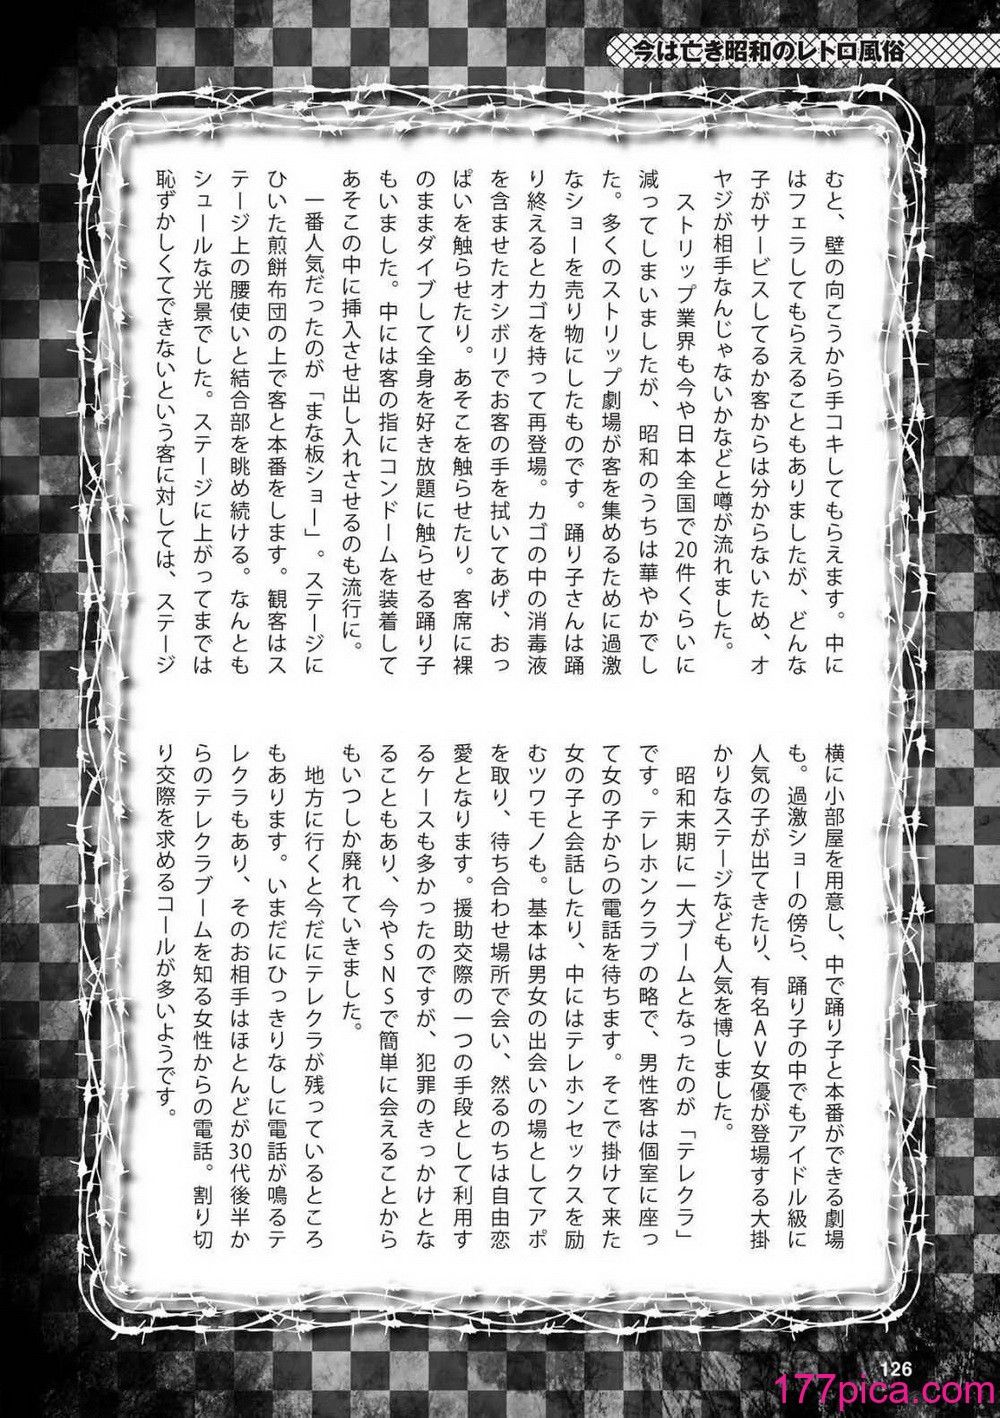 今は亡き昭和のレトロ風俗
むと、壁の向こうから手コキしてもらえます。中に
はフェラしてもらえることもありましたが、どんな
子がサービスしてるか客からは分からないため、オ
ヤジが相手なんじゃないかなどと噂が流れました。
　ストリップ業界も今や日本全国で20件くらいに
減ってしまいましたが、昭和のうちは華やかでし
た。多くのストリップ劇場が客を集めるために過激
なショーを売り物にしたものです。踊り子さんは踊
り終えるとカゴを持って再登場。カゴの中の消毒液
を含ませたオシボリでお客の手を拭いてあげ、おっ
ぱいを触らせたり。あそこを触らせたり。客席に裸
のままダイブして全身を好き放題に触らせる踊り子
もいました。中には客の指にコンドームを装着して
あそこの中に挿入させ出し入れさせるのも流行に。
　一番人気だったのが「まな板ショー」。ステージに
ひいた煎餅布団の上で客と本番をします。観客はス
テージ上の腰使いと結合部を眺め続ける。なんとも
シュールな光景でした。ステージに上がってまでは
恥ずかしくてできないという客に対しては、ステージ
横に小部屋を用意し、中で踊り子と本番ができる劇場
も。過激ショーの傍ら、踊り子の中でもアイドル級に
人気の子が出てきたり、有名AV女優が登場する大掛
かりなステージなども人気を博しました。
　昭和末期に一大ブームとなったのが「テレクラ」
です。テレホンクラブの略で、男性客は個室に座っ
て女の子からの電話を待ちます。そこで掛けて来た
女の子と会話したり、中にはテレホンセックスを励
むツワモノも。基本は男女の出会いの場としてアポ
を取り、待ち合わせ場所で会い、然るのちは自由恋
愛となります。援助交際の一つの手段として利用す
るケースも多かったのですが、犯罪のきっかけとな
ることもあり、今やSNSで簡単に会えることから
もいつしか廃れていきました。
　地方に行くと今だにテレクラが残っているところ
もあります。いまだにひっきりなしに電話が鳴るテ
レクラもあり、そのお相手はほとんどが30代後半か
らのテレクラブームを知る女性からの電話。割り切
り交際を求めるコールが多いようです。
126
177pica.com